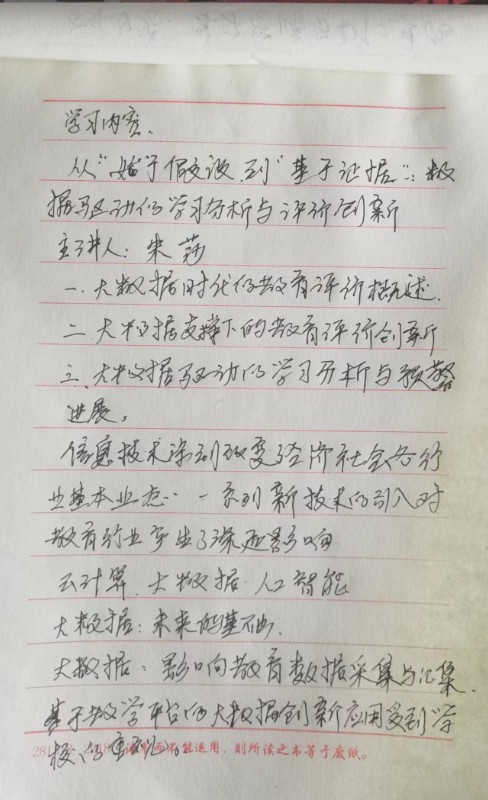 学习内容.
从"始于假设"到"基于证据":数
据驱动的学习分析与评价创新
主讲人:朱莎
一.大数据时代的教育评价概述.
二.大数据支撑下的教育评价创新
三.大数据驱动的学习分析与预警
进展.
信息技术深刻改变经济社会各行
业基本业态… 一系列新技术的引入对
教育行业产生了深远影响
云计算.大数据.人工智能
大数据:未来的基石.
大数据:影响教育数据采集与汇集.
基于教学平台的大数据创新应用受到学
校的重视.
不能运用,则所读之书等于废纸。